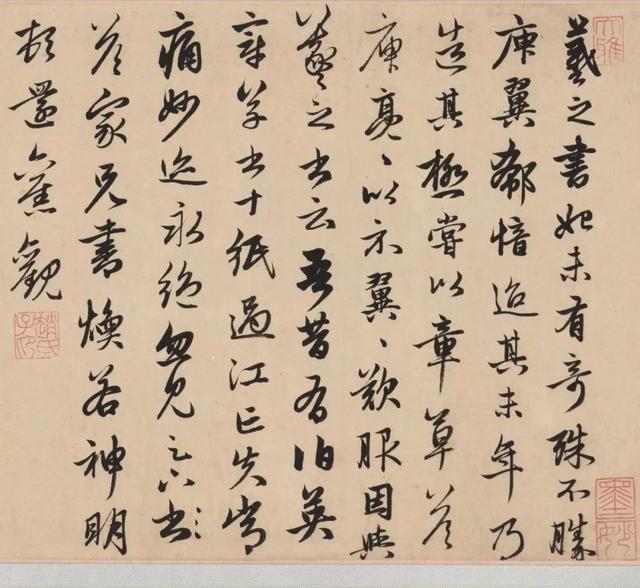 羲之書始未有奇殊不勝
庾翼郗愔迨其末年乃
造其極嘗以章草答
庾亮、以示翼、歎服因與
羲之書云吾昔有伯英
章草書十紙過江亡失常
痛妙迹永絕忽見足下書
答家兄書煥若神明
頓還舊觀
趙氏子昂
大雅